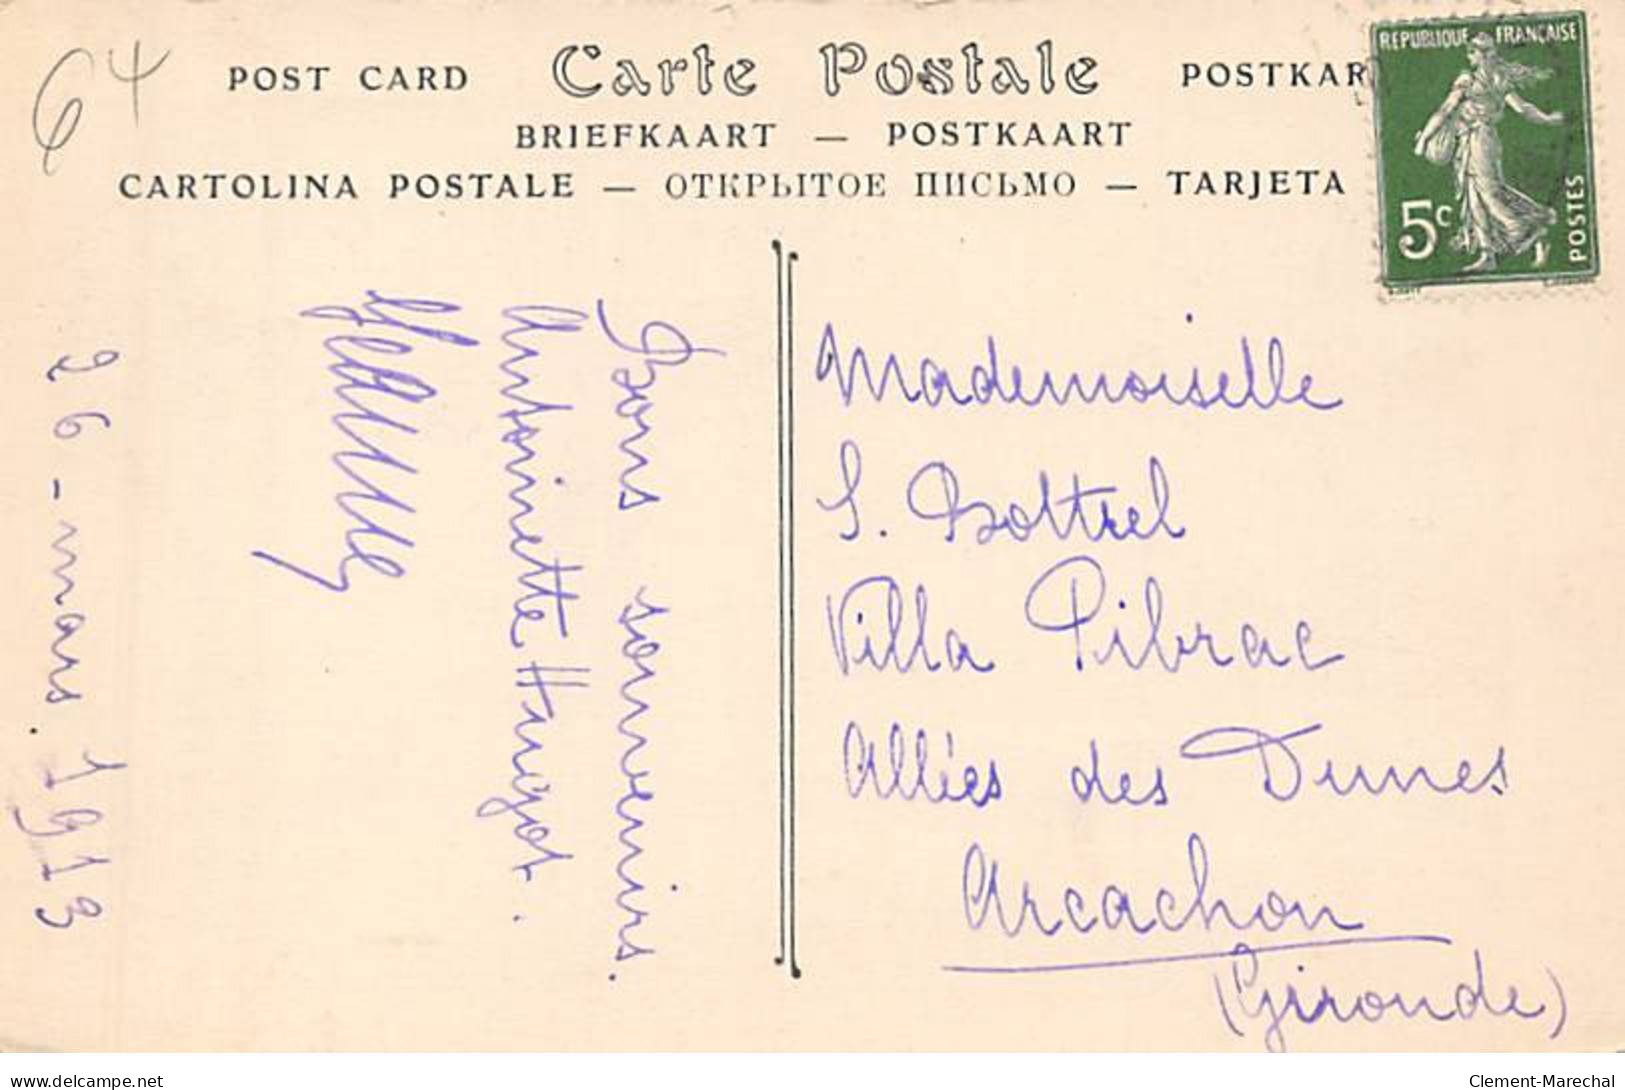 64
POST CARD Carte Postale POSTKAR
BRIEFKAART — POSTKAART
CARTOLINA POSTALE — ОТКРЫТОЕ ПИСЬМО — TARJETA
REPUBLIQUE FRANÇAISE
5c
POSTES
Bons souvenirs.
Antoinette Hugot.
26-mars.1913
Mademoiselle
S. Bottrel
Villa Pibrac
Allées des Dunes
Arcachon
(Gironde)
delcampe.net
Clement-Marechal